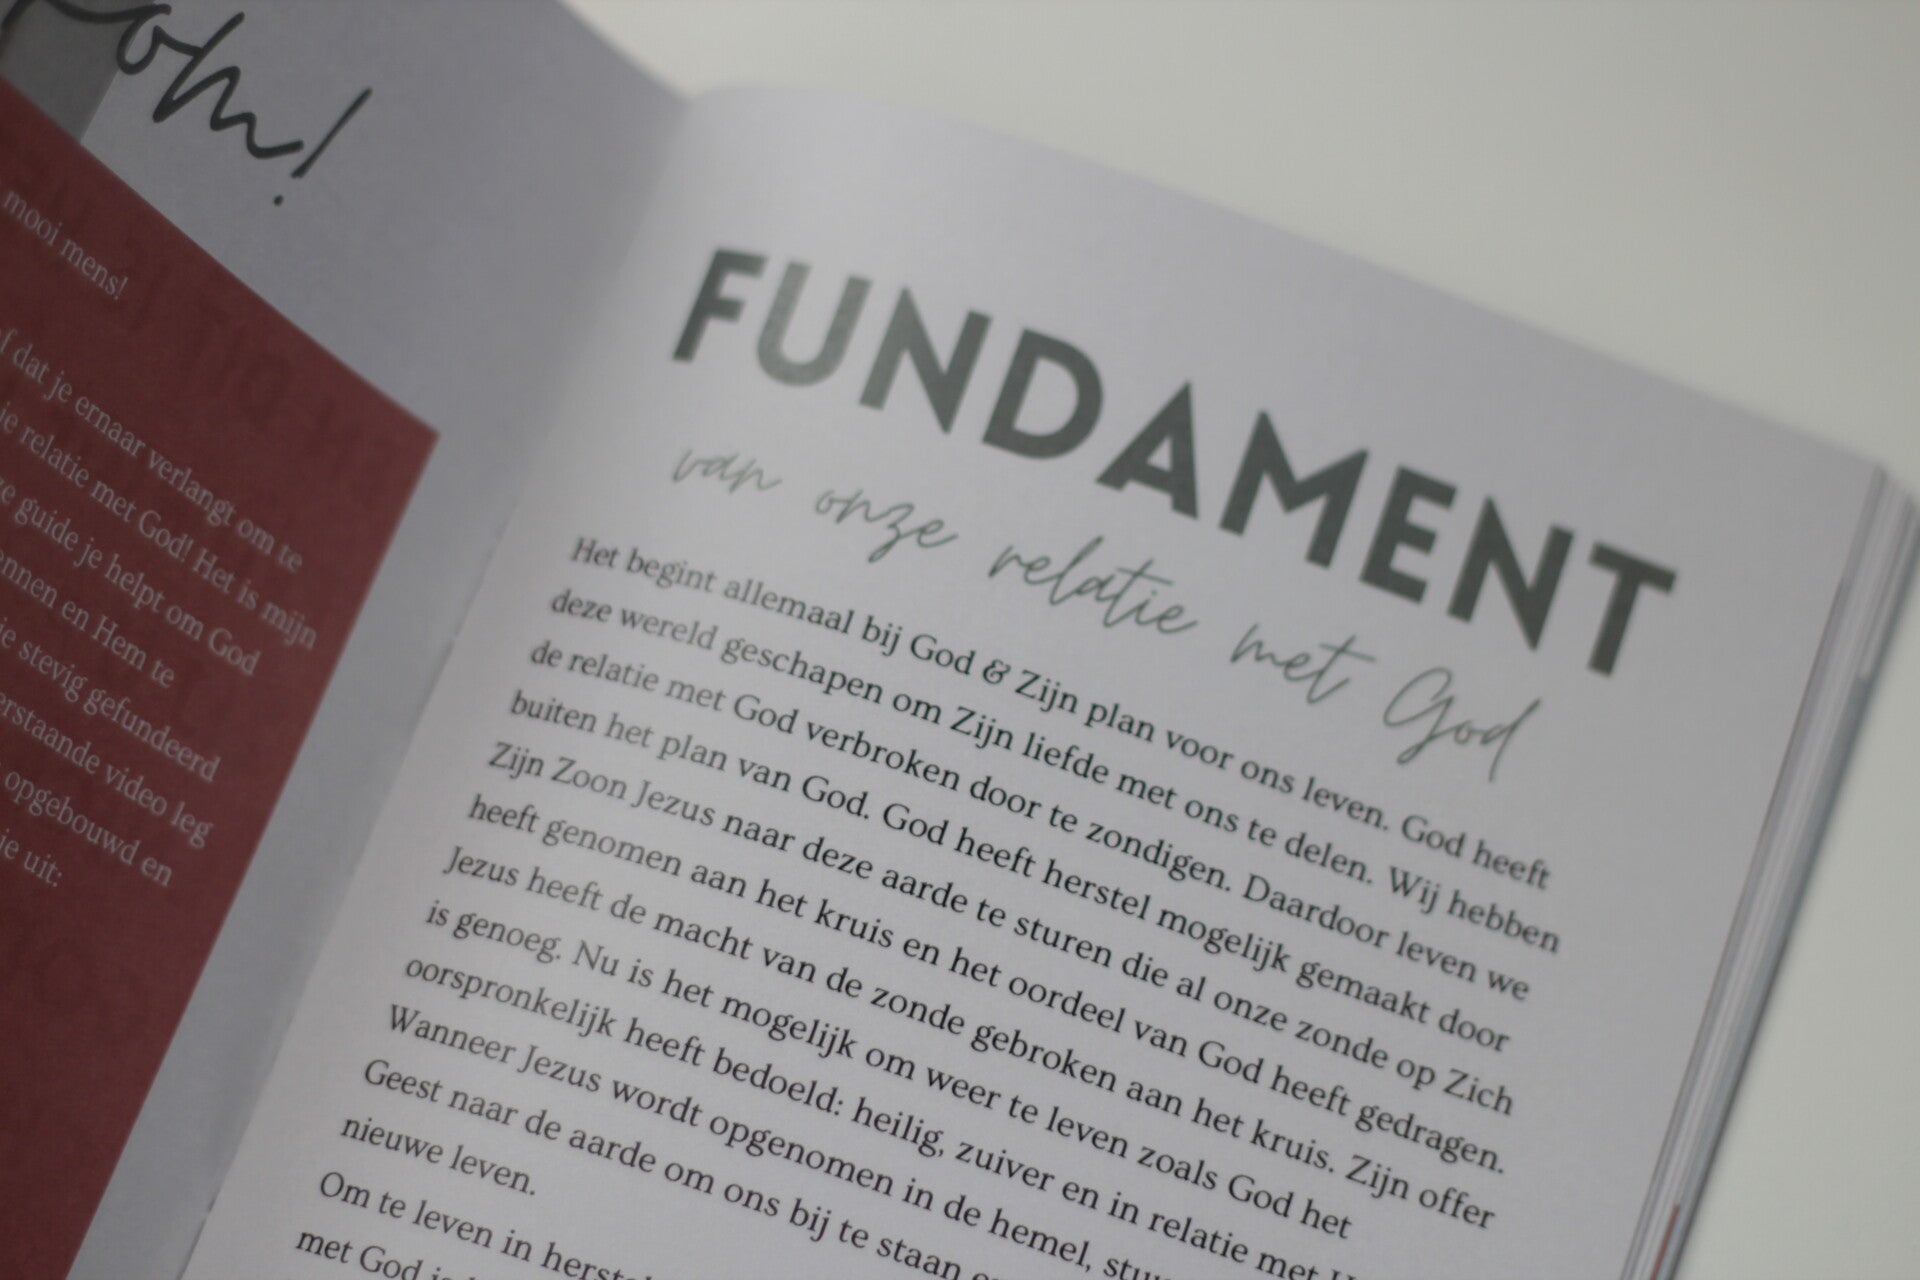 mooi mens!
dat je ernaar verlangt om te
je relatie met God! Het is mijn
guide je helpt om God
en Hem te
je stevig gefundeerd
video leg
opgebouwd en
je uit:
FUNDAMENT
van onze relatie met God
Het begint allemaal bij God & Zijn plan voor ons leven. God heeft
deze wereld geschapen om Zijn liefde met ons te delen. Wij hebben
de relatie met God verbroken door te zondigen. Daardoor leven we
buiten het plan van God. God heeft herstel mogelijk gemaakt door
Zijn Zoon Jezus naar deze aarde te sturen die al onze zonde op Zich
heeft genomen aan het kruis en het oordeel van God heeft gedragen.
Jezus heeft de macht van de zonde gebroken aan het kruis. Zijn offer
is genoeg. Nu is het mogelijk om weer te leven zoals God het
oorspronkelijk heeft bedoeld: heilig, zuiver en in relatie met
Wanneer Jezus wordt opgenomen in de hemel,
Geest naar de aarde om ons bij te staan
nieuwe leven.
Om te leven in
met God